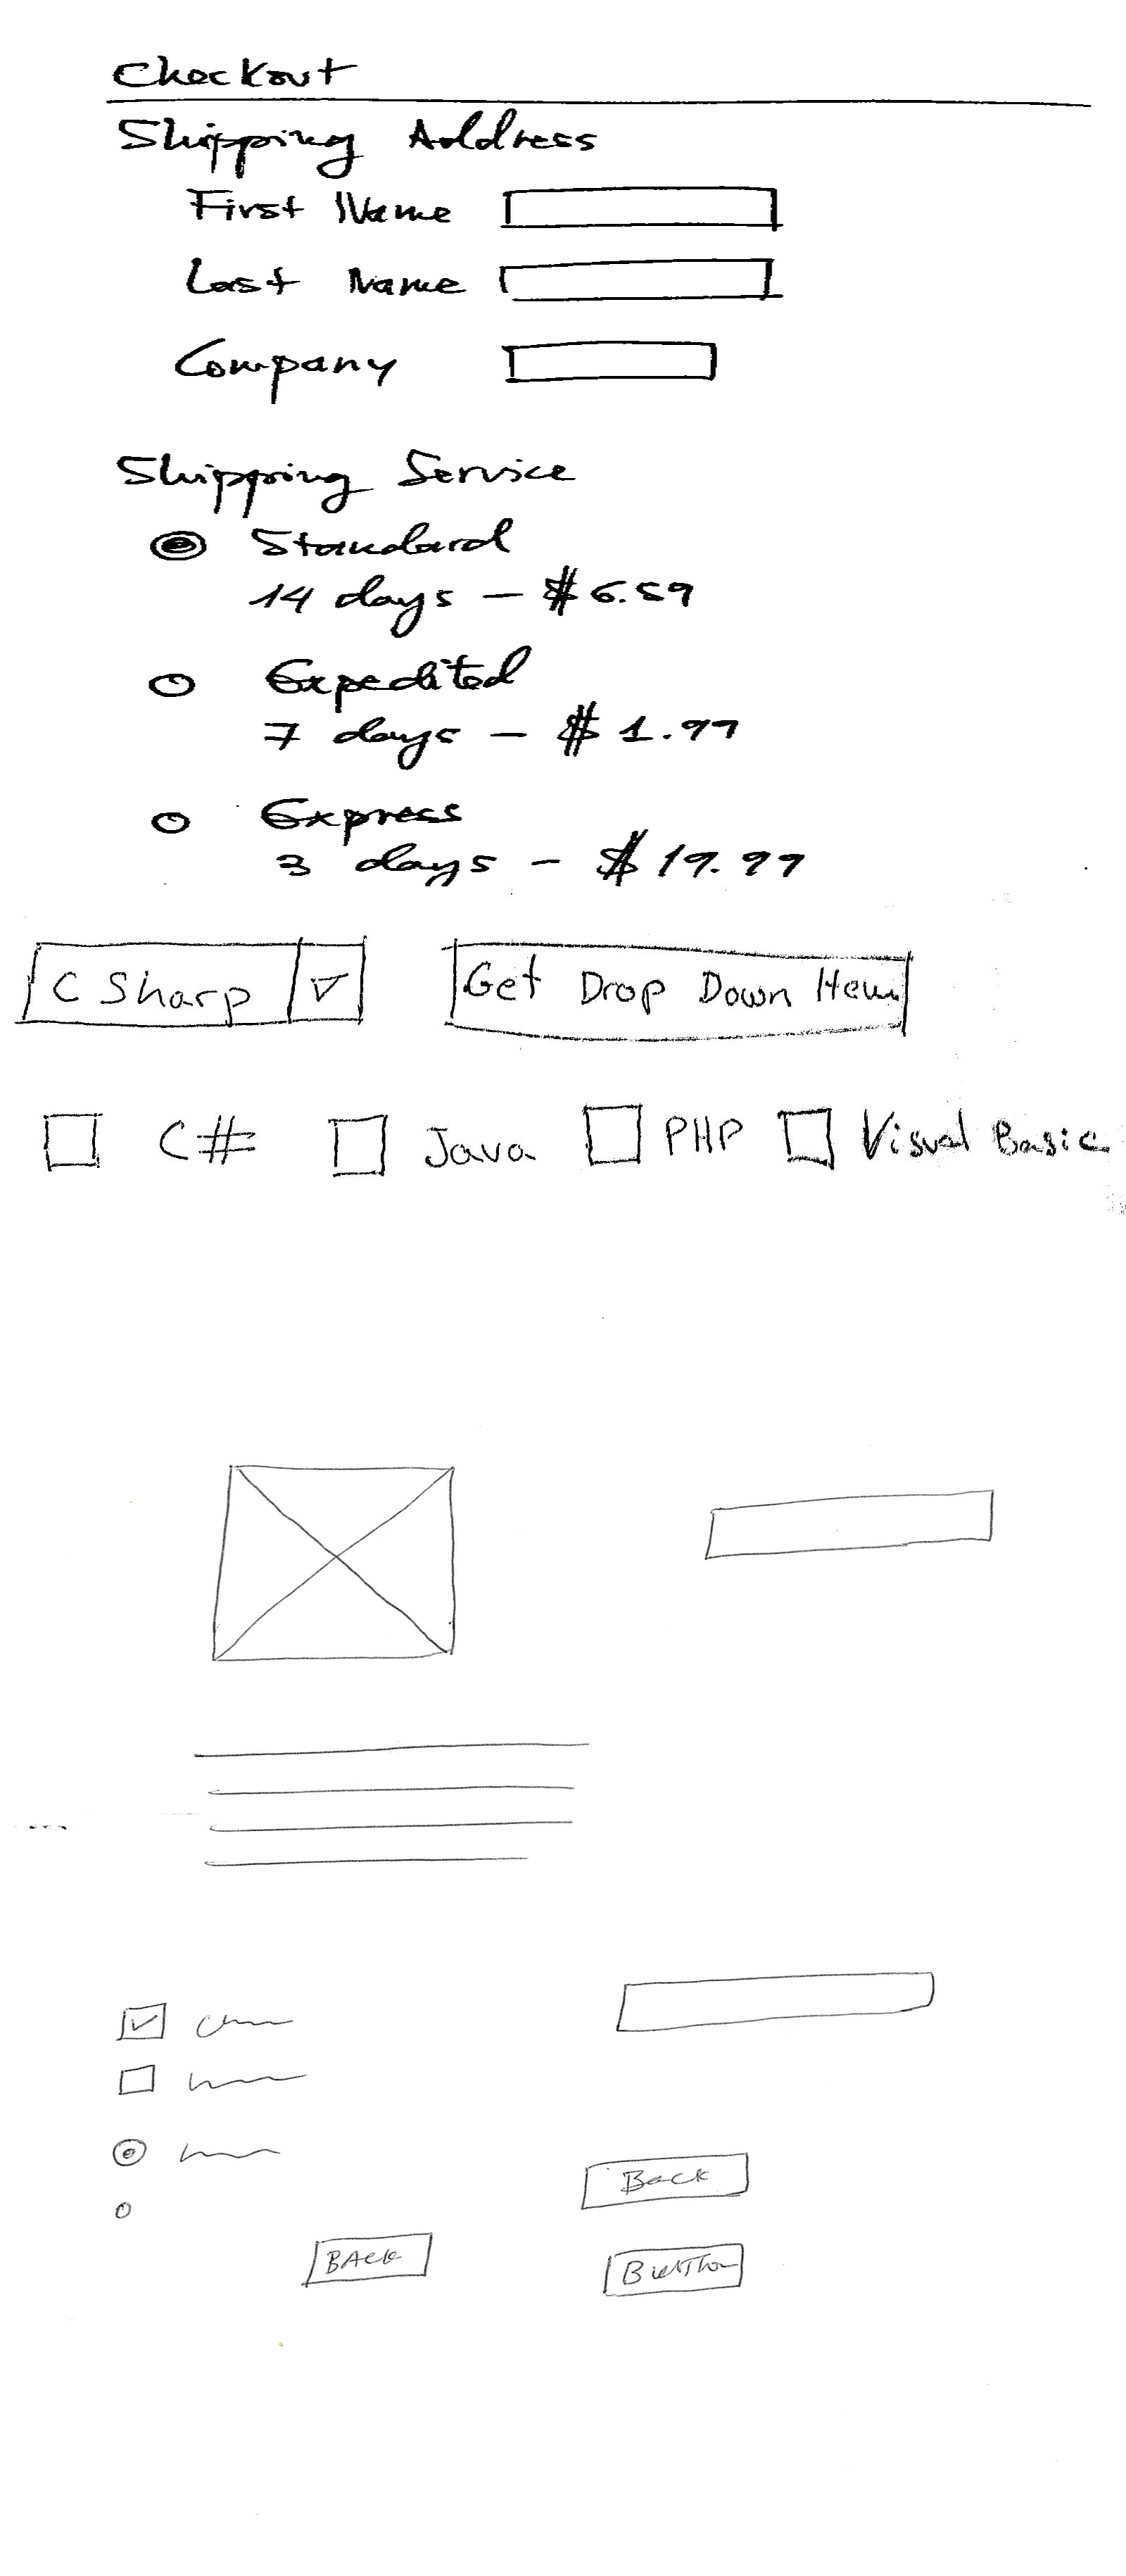 Checkout
Shipping Address
First Name
Last Name
Company
Shipping Service
Standard
14 days - $6.59
Expedited
7 days - $1.99
Express
3 days - $19.99
C Sharp Get Drop Down Item
C# Java PHP Visual Basic
Back
BACK
Button